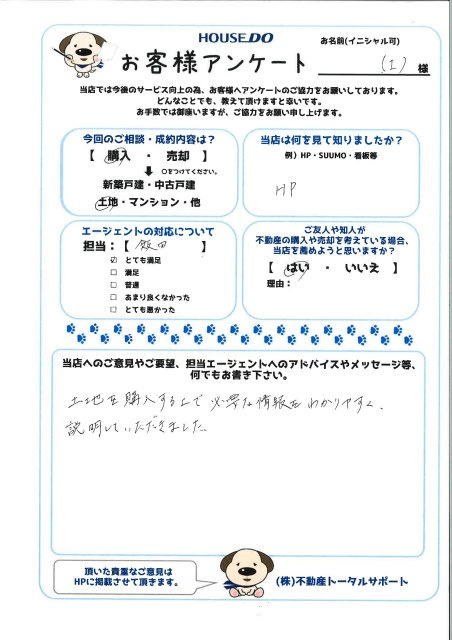 HOUSEDO
お客様アンケート
お名前(イニシャル可)
(I) 様
当店では今後のサービス向上の為、お客様へアンケートのご協力をお願いしております。
どんなことでも、教えて頂けますと幸いです。
お手数では御座いますが、ご協力をお願い申し上げます。
今回のご相談・成約内容は?
【 購入 ・ 売却 】
○をつけてください。
新築戸建・中古戸建
土地・マンション・他
当店は何を見て知りましたか?
例)HP・SUUMO・看板等
HP
エージェントの対応について
担当:【 飯田 】
☑ とても満足
□ 満足
□ 普通
□ あまり良くなかった
□ とても悪かった
ご友人や知人が
不動産の購入や売却を考えている場合、
当店を薦めようと思いますか?
【 はい ・ いいえ 】
理由:
当店へのご意見やご要望、担当エージェントへのアドバイスやメッセージ等、
何でもお書き下さい。
土地を購入する上で必要な情報をわかりやすく、
説明していただきました。
頂いた貴重なご意見は
HPに掲載させて頂きます。
(株)不動産トータルサポート